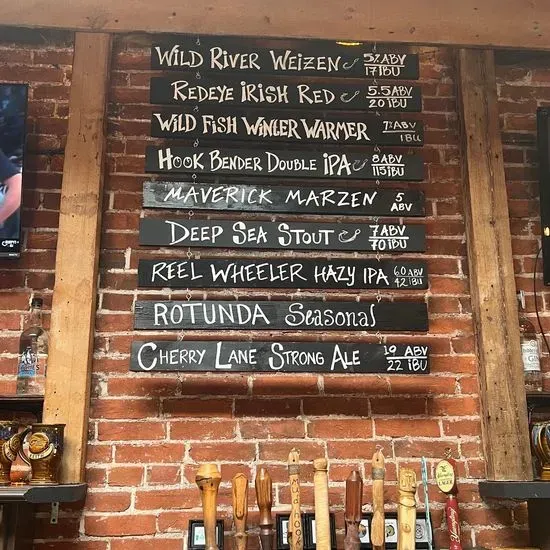 WILD RIVER WEIZEN 5.2 ABV
17 IBU
REDEYE IRISH RED 5.5 ABV
20 IBU
WILD FISH WINTER WARMER 7% ABV
IBU
HOOK BENDER DOUBLE IPA 8 ABV
115 IBU
MAVERICK MARZEN 5
ABV
DEEP SEA STOUT 7 ABV
70 IBU
REEL WHEELER HAZY IPA 6.0 ABV
42 IBU
ROTUNDA Seasonal
CHERRY LANE STRONG ALE ABV
22 IBU
LAGER
Yuengling